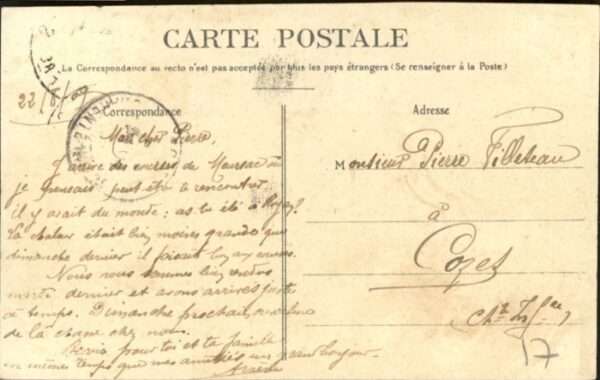 CARTE POSTALE
La Correspondance au recto n'est pas acceptée par tous les pays étrangers (Se renseigner à la Poste)
22/8/09
Correspondance
Mon cher Pierre,
J'arrive des courses de où
je pensais peut être te rencontrer
il y avait du monde: as tu été à Royan?
La chaleur était bien moins grande que
dimanche dernier il faisait bon aux courses.
Nous nous sommes bien rendus
mardi dernier et avons arrivés juste
à temps. Dimanche prochain
de la chez nous.
pour toi et ta famille
en même temps que mes amitiés un bonjour.
Adresse
Monsieur Pierre Filleteau
à
Cozes
Chte Infre
17